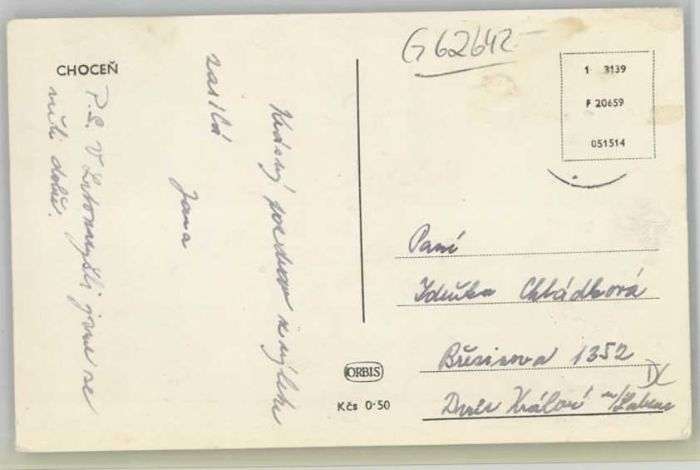 G 62642-
CHOCEŇ
1 3139
F 20659
051514
Krásný pozdrav z výletu
zasílá
Jana
P.S. V Litomyšli jsme se
měli dobře.
Paní
Iduška Chládková
Březinova 1352
Dvůr Králové n/Labem
IX
ORBIS
Kčs 0·50